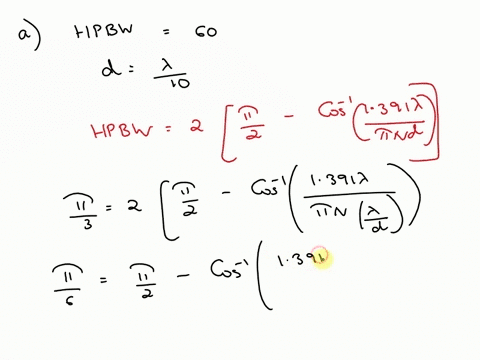 a) HPBW = 60
d = λ/10
HPBW = 2 [π/2 - Cos⁻¹(1.391λ/πNd)]
π/3 = 2 [π/2 - Cos⁻¹(1.391λ/πN(λ/d))
π/6 = π/2 - Cos⁻¹(1.391